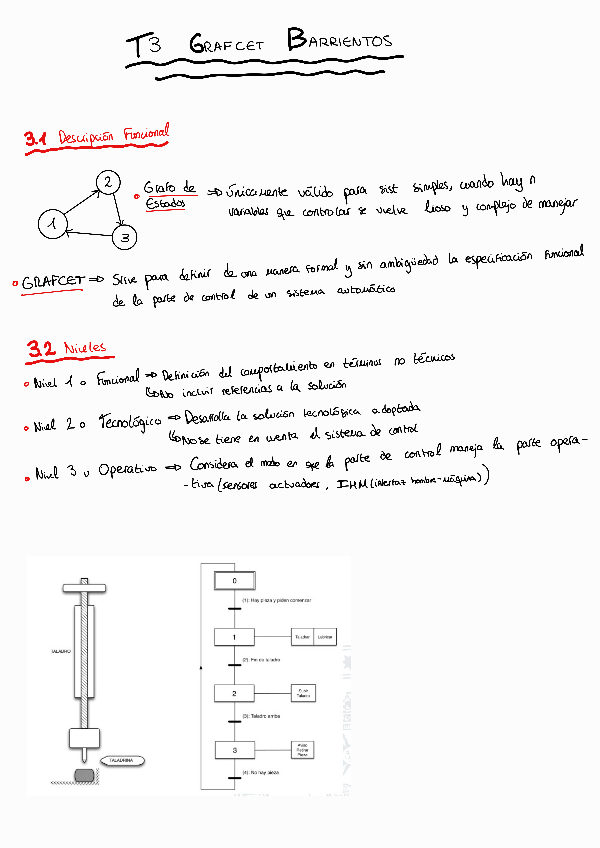 T3 GRAFCET BARRIENTOS
3.1 Descripción Funcional
1
2
3
• Grafo de ⇒ Únicamente válido para sist simples, cuando hay n
Estados variables que controlar se vuelve lioso y complejo de manejar
• GRAFCET ⇒ Sirve para definir de una manera formal y sin ambigüedad la especificación funcional
de la parte de control de un sistema automático
3.2 Niveles
• Nivel 1 o Funcional ⇒ Definición del comportamiento en términos no técnicos
↳No incluir referencias a la solución
• Nivel 2 o Tecnológico ⇒ Desarrolla la solución tecnológica adoptada
↳No se tiene en cuenta el sistema de control
• Nivel 3 u Operativo ⇒ Considera el modo en que la parte de control maneja la parte opera-
-tiva (sensores actuadores, IHM (interfaz hombre-máquina))
TALADRO
TALADRINA
0
(1): Hay pieza y piden comenzar
1
Taladrar
Lubricar
(2): Fin de taladro
2
Subir
Taladro
(3): Taladro arriba
3
Aviso
Retirar
Pieza
(4): No hay pieza